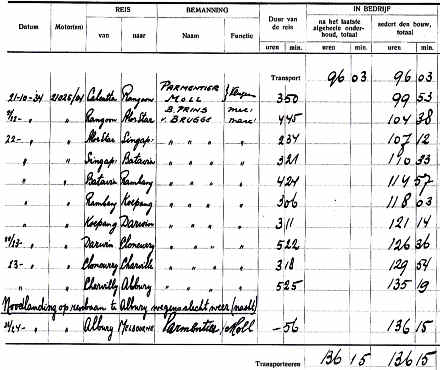 Datum Motor(en) REIS BEMANNING Duur van de reis IN BEDRIJF
van naar Naam Functie na het laatste algeheele onderhoud, totaal sedert den bouw, totaal
uren min. uren min. uren min.
Transport 96 03 96 03
PARMENTIER
21-10-34 21025/04 Calcutta Rangoon MOLL 3 50 99 53
B. PRINS
" Rangoon Alor Star v. BRUGGE 4 45 104 38
22- " " Alor Star Singap. " " " " 2 34 107 12
" " Singap. Batavia " " " " 3 21 110 33
" " Batavia Rambang " " " " 4 24 114 57
" " Rambang Koepang " " " " 3 06 118 03
" " Koepang Darwin " " " " 3 11 121 14
22/23- " " Darwin Cloncurry " " " " 5 22 126 36
23- " " Cloncurry Charville " " " " 3 18 129 54
" " Charville Albury " " " " 5 25 135 19
Noodlanding op renbaan te Albury wegens slecht weer (nacht)
23/24- " " Albury MELBOURNE Parmentier / Moll - 56 136 15
Transporteeren 136 15 136 15